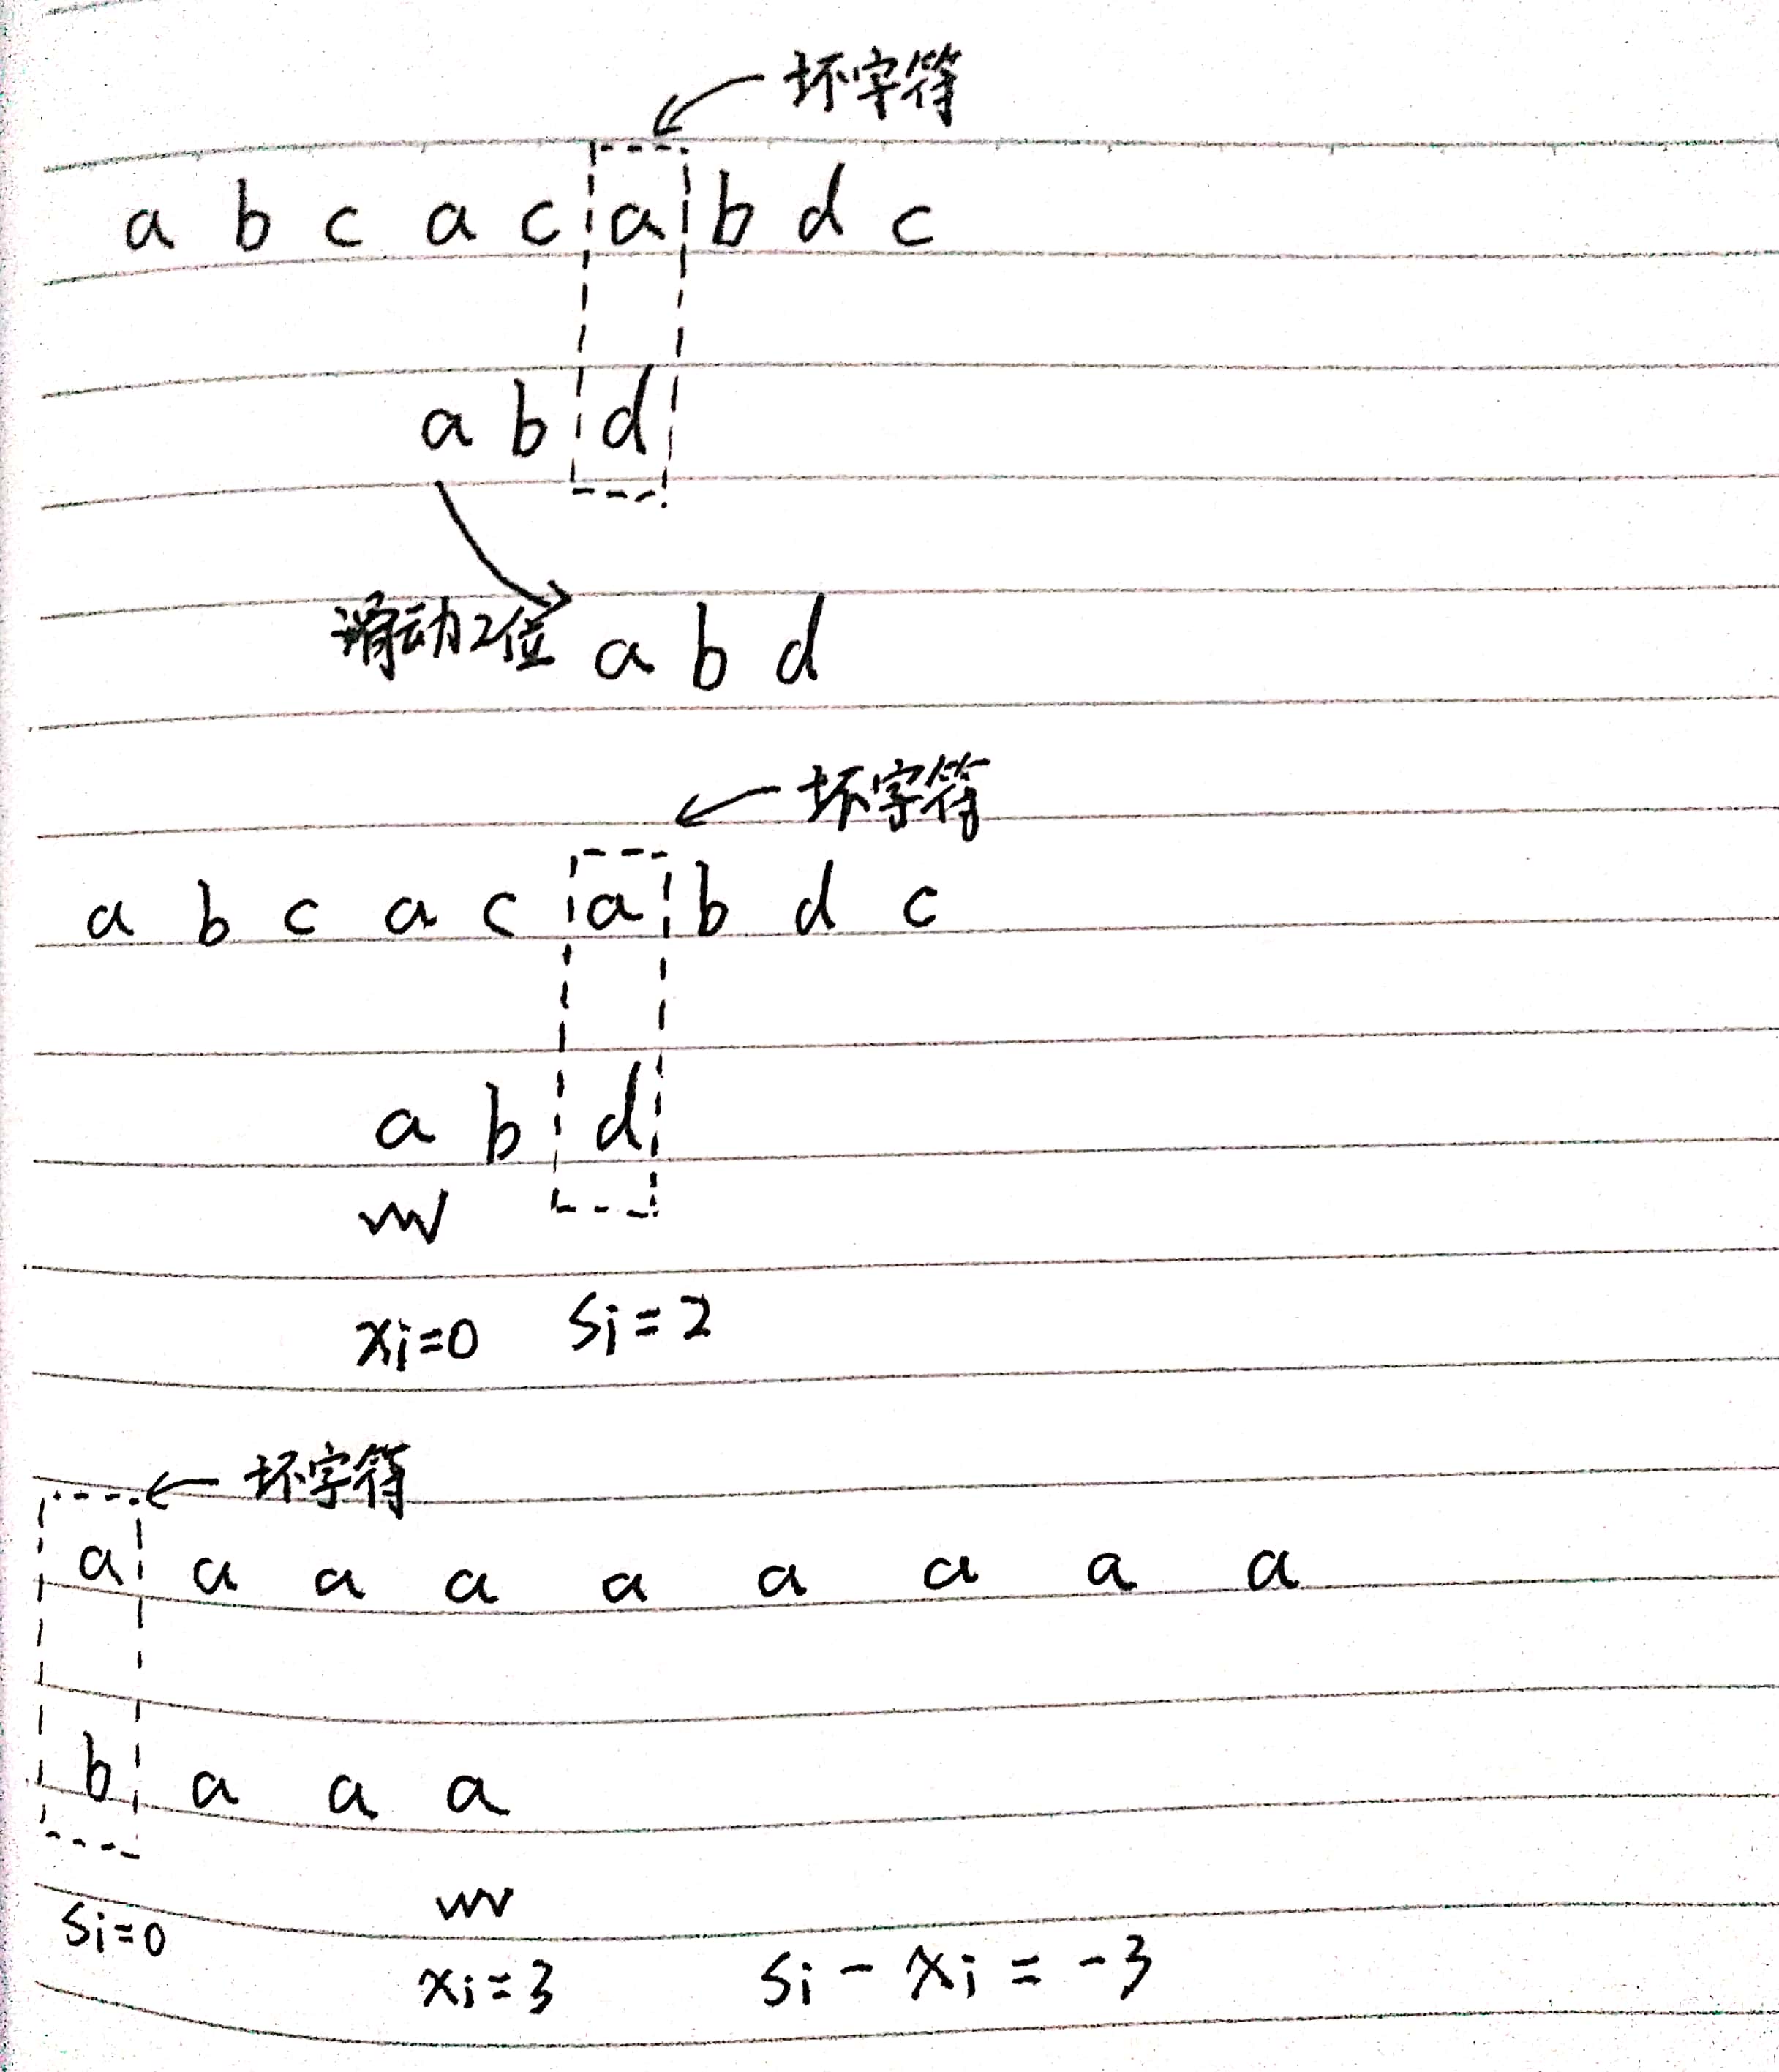 坏字符
a b c a c a b d c
a b d
滑动2位 a b d
坏字符
a b c a c a b d c
a b d
xi=0 si=2
坏字符
a a a a a a a a a
b a a a
si=0
xi=3 si - xi = -3